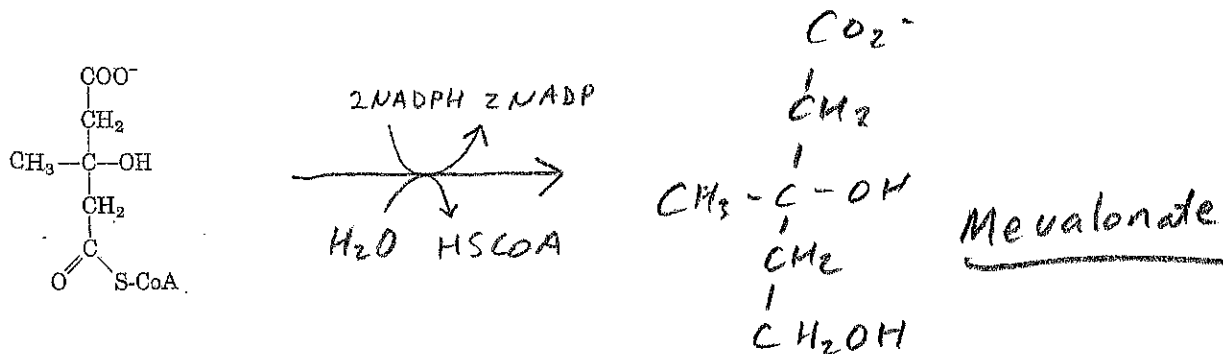 COO⁻
CH₂
CH₃-C-OH
CH₂
C
O S-CoA
2NADPH 2NADP
H₂O HSCOA
CO₂⁻
CH₂
CH₃-C-OH
CH₂
CH₂OH
Mevalonate